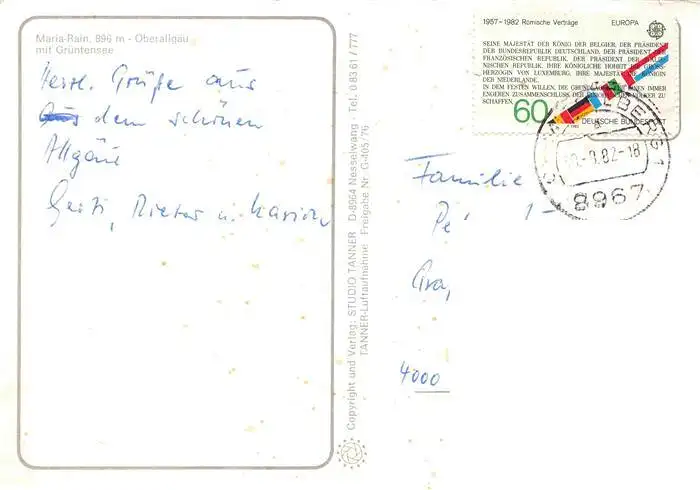 Maria-Rain, 896 m - Oberallgäu
mit Grüntensee
Herzl. Grüße aus
dem schönen
Allgäu
Dieter u. Marion
Copyright und Verlag: STUDIO TANNER D-8964 Nesselwang · Tel. 08361/777
TANNER-Luftaufnahme · Freigabe Nr. G-405/76
1957-1982 Römische Verträge EUROPA
SEINE MAJESTÄT DER KÖNIG DER BELGIER, DER PRÄSIDENT
DER BUNDESREPUBLIK DEUTSCHLAND, DER PRÄSIDENT DER
FRANZÖSISCHEN REPUBLIK, DER PRÄSIDENT DER ITALIE-
NISCHEN REPUBLIK, IHRE KÖNIGLICHE HOHEIT DIE GROSS-
HERZOGIN VON LUXEMBURG, IHRE MAJESTÄT DIE KÖNIGIN
DER NIEDERLANDE,
IN DEM FESTEN WILLEN, DIE GRUNDLAGEN EINEN IMMER
ENGEREN ZUSAMMENSCHLUSS DER EUROPÄISCHEN VÖLKER ZU
SCHAFFEN
60
DEUTSCHE BUNDESPOST
.82-18
8967
Familie
4000